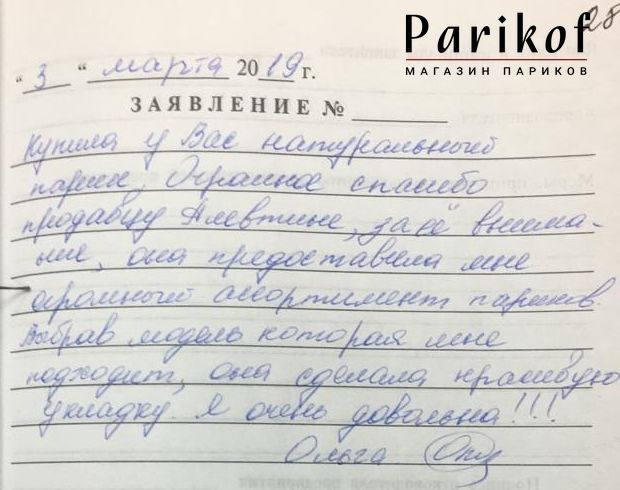 28
Parikof
МАГАЗИН ПАРИКОВ
"3" марта 2019 г.
ЗАЯВЛЕНИЕ №
Купила у Вас натуральный
парик, Огромное спасибо
продавцу Алевтине, за её внима-
ние, она предоставила мне
огромный ассортимент париков.
Выбрав модель которая мне
подходит, она сделала красивую
укладку. Я очень довольна!!!
Ольга